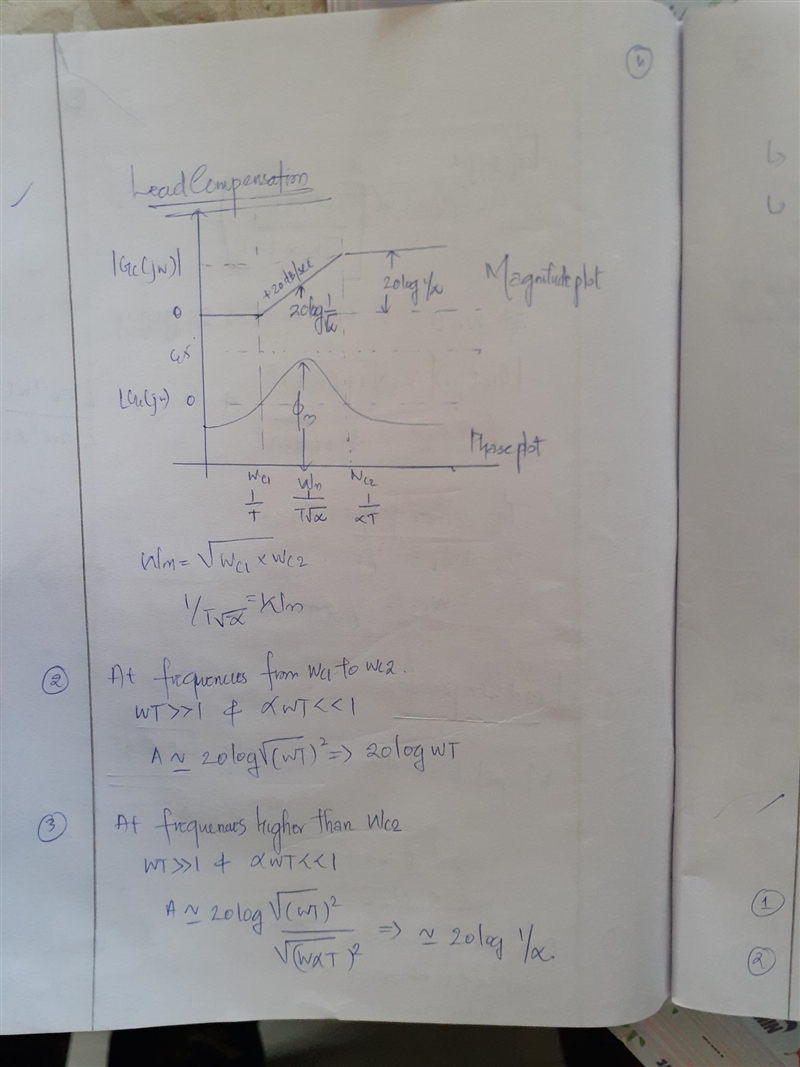 6
Lead Compensation
|Gc(jw)|
+20 db/sec
20log 1/√α
20log 1/α
Magnitude plot
0
Gc(jw) 0
ϕm
Phase plot
WC1 Wm WC2
1/T 1/T√α 1/αT
Wm = √WC1 × WC2
1/T√α = Wm
② At frequencies from WC1 to WC2.
WT>>1 & αWT<<1
A ≃ 20log√(WT)² => 20logWT
③ At frequencies higher than WC2
WT>>1 & αWT<<1
A ≃ 20log √(WT)² / √(WαT)² => ≃ 20log 1/α.
①
②